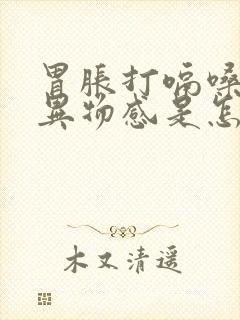 胃胀打嗝嗓
异物感是怎
木又清遥